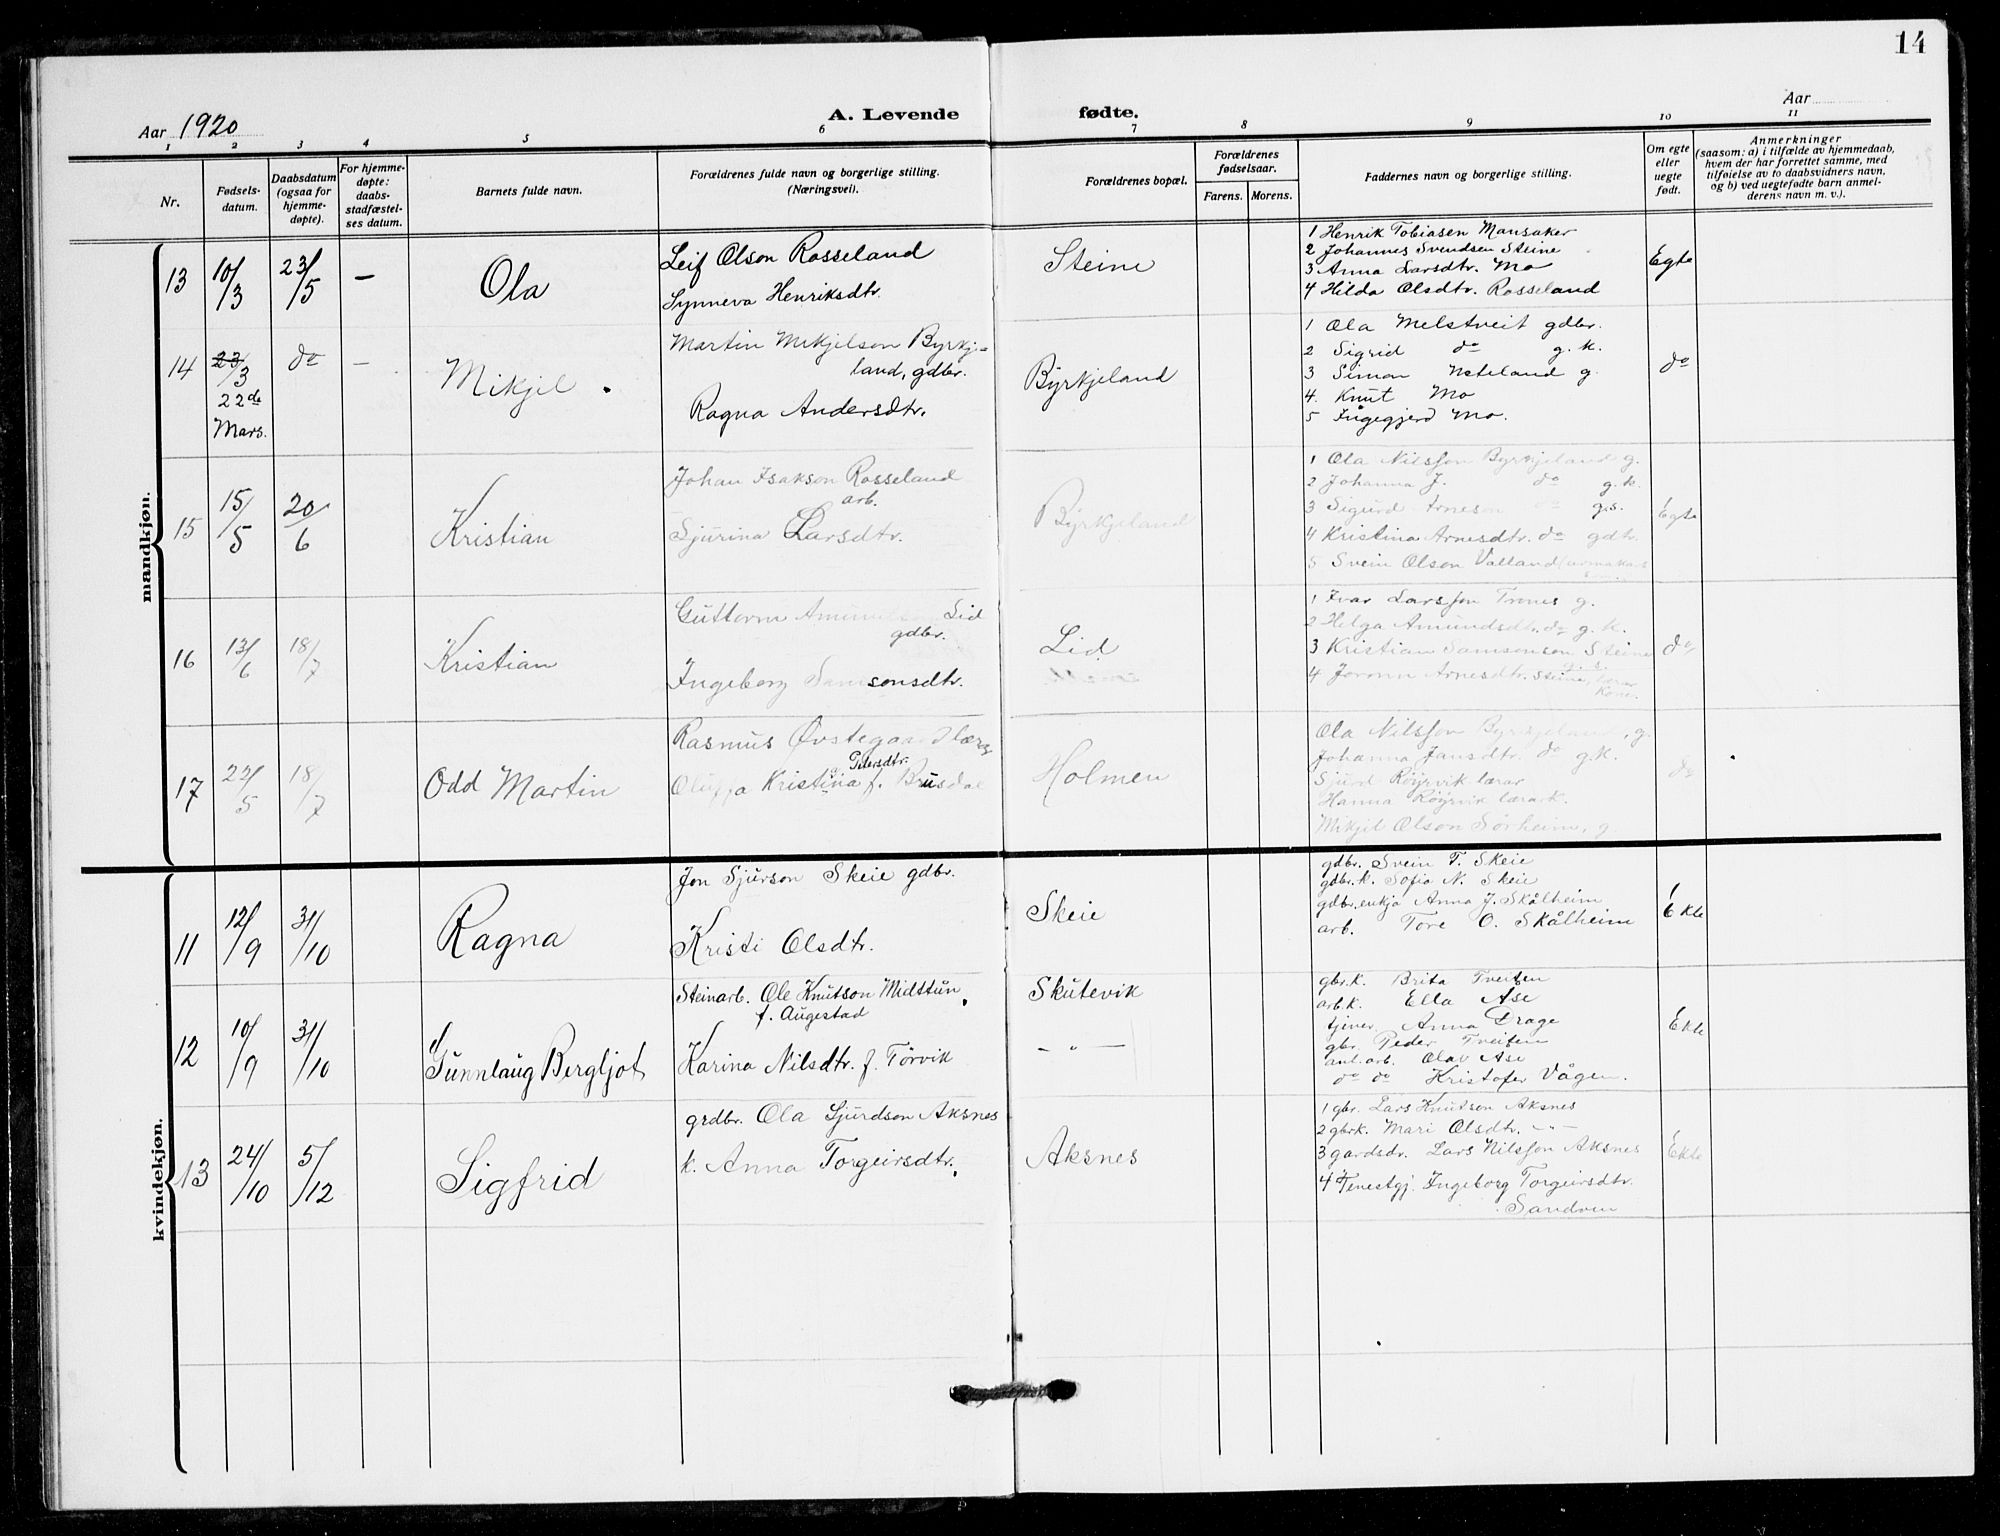 14
A. Levende fødte.
Aar 1920
Aar
1 2 3 4 5 6 7 8 9 10 11
Nr.
Fødsels-
datum.
Daabsdatum
(ogsaa for
hjemme-
døpte).
For hjemme-
døpte:
daabs-
stadfæstel-
ses datum.
Barnets fulde navn.
Forældrenes fulde navn og borgerlige stilling.
(Næringsvei).
Forældrenes bopæl.
Forældrenes
fødselsaar.
Farens. Morens.
Faddernes navn og borgerlige stilling.
Om egte
eller
uegte
født.
Anmerkninger
(saasom: a) i tilfælde av hjemmedaab,
hvem der har forrettet samme, med
tilføielse av to daabsvidners navn,
og b) ved uegtefødte barn anmel-
derens navn m. v.).
mandkjøn.
13 10/3 23/5 — Ola
Leif Olson Rosseland
Synneva Henriksdtr.
Steine
1 Henrik Tobiasen Mansaker
2 Johannes Svendsen Steine
3 Anna Larsdtr. Mo
4 Hilda Olsdtr. Rosseland
Egte
14 23/3 do — Mikjel
22de
Mars.
Martin Mikjelson Byrkje-
land, gdbr.
Ragna Andersdtr.
Byrkjeland
1 Ola Melstveit gdbr.
2 Sigrid do g. k.
3 Simon Neteland g.
4. Knut Mo
5 Ingegjerd Mo.
do
15 15/5 20/6 Kristian
Johan Isakson Rosseland
arb.
Sjurina Larsdtr.
Byrkjeland
1 Ola Nilsson Byrkjeland g.
2 Johanna J. do g.k.
3 Sigurd Arneson do g.s.
4 Kristina Arnesdtr. do gdtr.
5 Svein Olson Valland
Egte
16 13/6 18/7 Kristian
Guttorm Lid
gdbr.
Ingeborg Samsonsdtr.
Lid
1 Ivar Larsson Trones g.
2 Helga Amundsdtr. do g.k.
3 Kristian Samsonson Steine
g. s.
4 Joronn Arnesdtr. Steine,
Kone.
do
17 22/5 18/7 Odd Martin
Rasmus Øvstegaard lærar
Petersdtr.
Oluffa Kristina f. Brusdal
Holmen
Ola Nilsson Byrkjeland, g.
Johanna Jansdtr. do g.k.
Sjurd Røyrvik lærar
Hanna Røyrvik lærark.
Mikjel Olson Sørheim, g.
do
kvindekjøn.
11 12/9 31/10 Ragna
Jon Sjurson Skeie gdbr.
Kristi Olsdtr.
Skeie
gdbr. Svein T. Skeie
gdbr.k. Sofia N. Skeie
gdbr.enkja Anna J. Skålheim
arb. Tore O. Skålheim
Ekte
12 10/9 31/10 Gunnlaug Bergljot
Steinarb. Ole Knutson Midttun,
f. Augestad
Karina Nilsdtr. f. Tørvik
Skutevik
— " —
gbr.k. Brita Tveiten
arb.k. Ella Åse
tjener. Anna Drage
gbr. Peder Tveiten
anl. arb. Olav Åse
do do Kristofer Vågen.
Ekte
13 24/10 5/12 Sigfrid
grdbr. Ola Sjurdson Aksnes
k. Anna Torgeirsdtr.
Aksnes
1 gbr. Lars Knutson Aksnes
2 gbrk. Mari Olsdtr. —"—
3 gardsdr. Lars Nilsson Aksnes
4 Tenestgj. Ingeborg Torgeirsdtr.
Sandven
Ekte